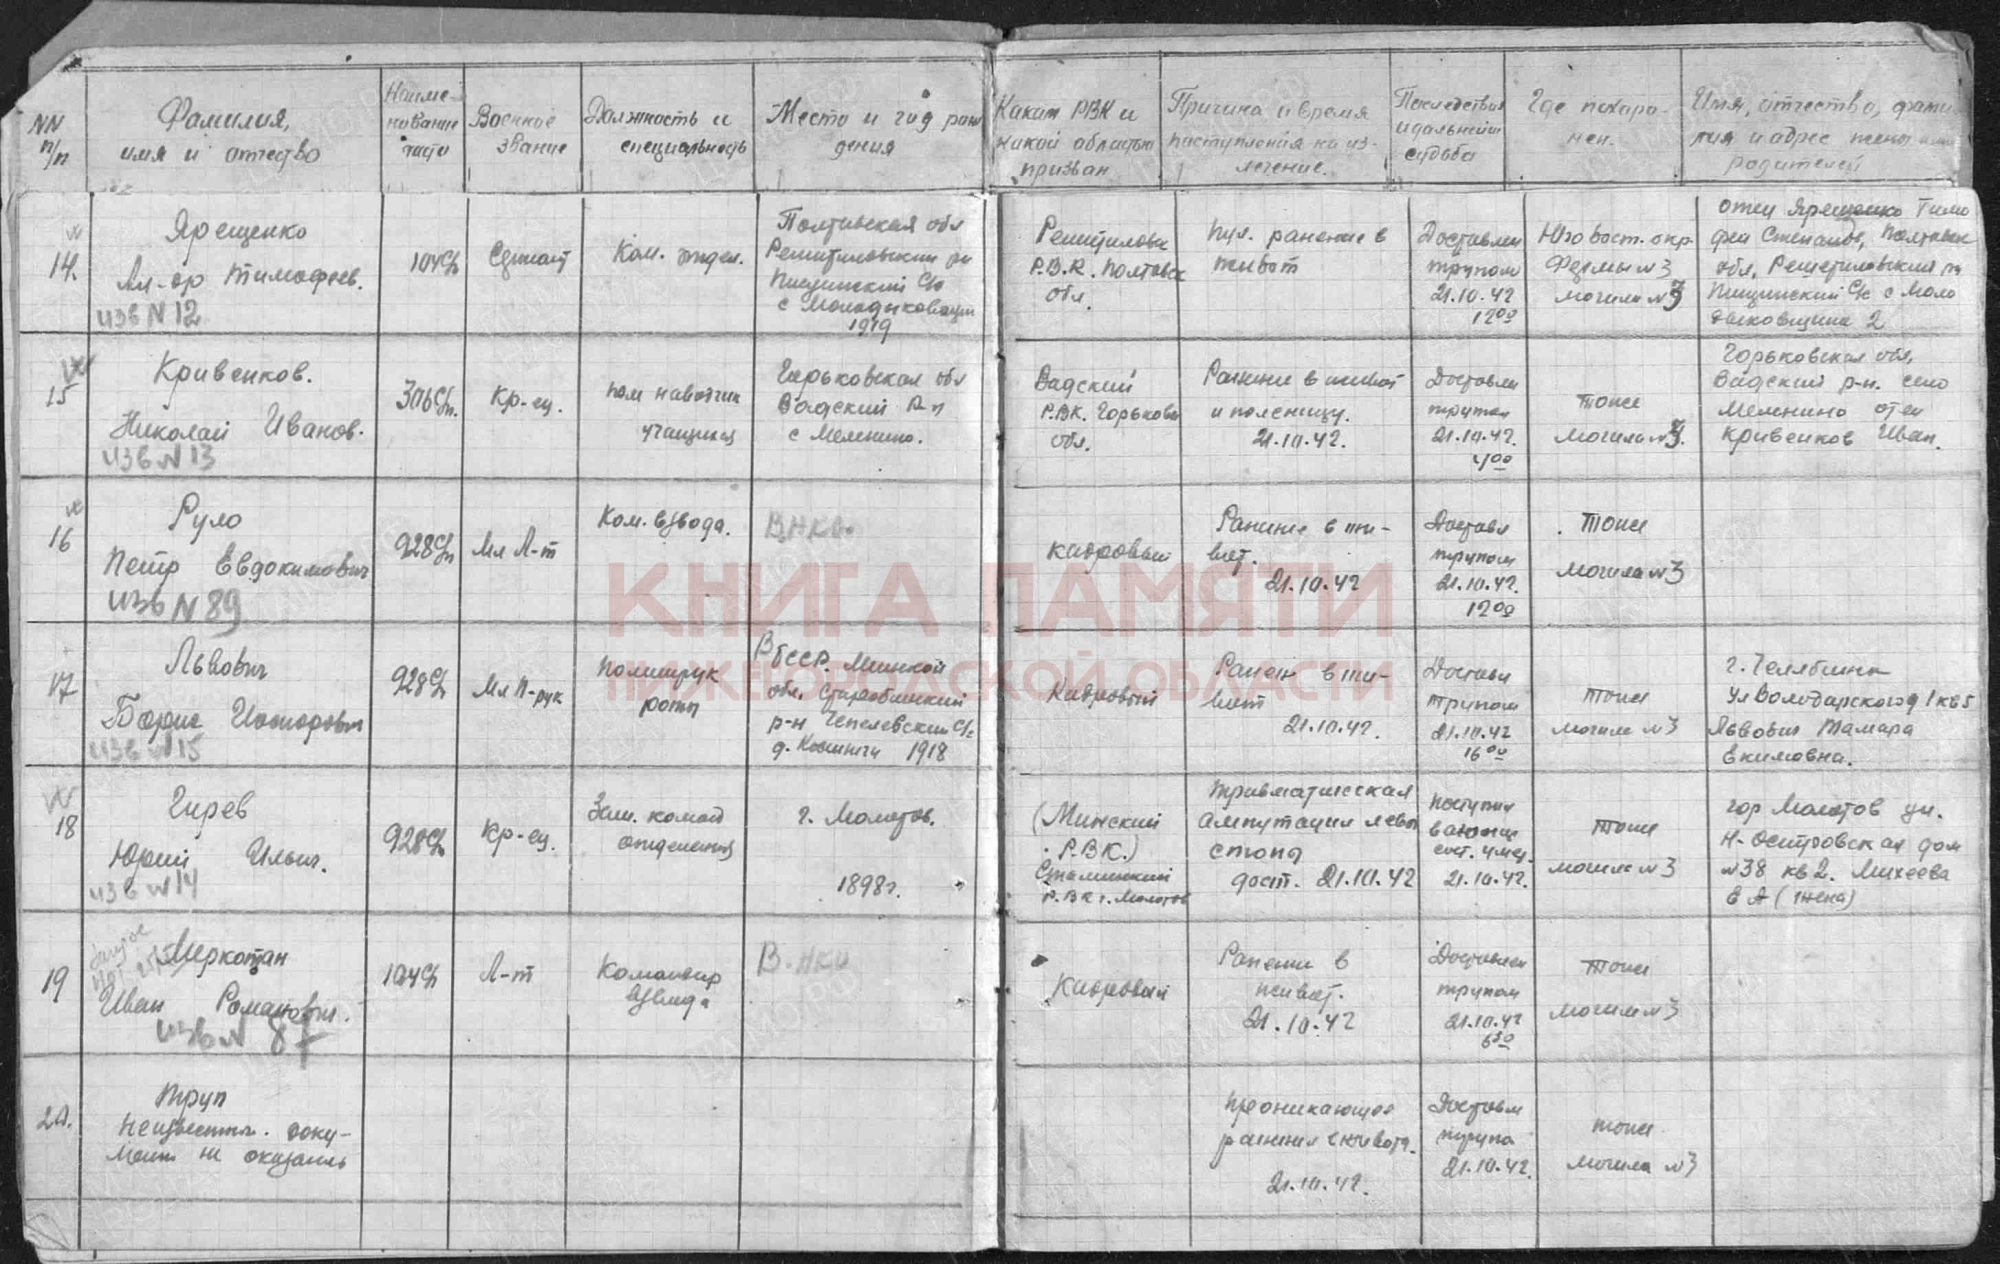 NN п/п
Фамилия, имя и отчество
Наиме-нование части
Военное звание
Должность и специальность
Место и год рож дения
Каким РВК и какой областью призван
Причина и время поступления на из-лечение.
Последствия и дальнейш судьба
Где похоро-нен.
Имя, отчество, фами лия и адрес жены или родителей
14.
Ярещенко
Ал-др Тимофеев.
изв N 12
104 Сп
Сержант
Ком. отдел.
Полтавская обл
Решетиловский рн
Пищинский С/с
с Молодыковщин
1919
Решетиловск
Р.В.К. Полтавск
обл.
Пул. ранение в
живот
Доставлен
трупом
21.10.42
12⁰⁰
Юго Вост. окр.
Фермы N 3
могила N 3
отец Ярещенко Тимо
фей Степанов, Полтавск
обл, Решетиловский рн
Пищинский С/с с Моло
дыковщина 2
15
Кривенков.
Николай Иванов.
изв N 13
306 Сп.
Кр-ец.
пом наводчик
учащийся
Горьковская обл
Вадский Р-н
с Меленино.
Вадский
Р.В.К. Горьковск
обл.
Ранение в живот
и поясницу.
21.10.42.
Доставлен
трупом
21.10.42.
4⁰⁰
тоже
могила N 3.
Горьковская обл,
Вадский р-н. село
Меленино отец
Кривенков Иван.
16
Руло
Петр Евдокимович
изв N 89
928 Сп
Мл Л-т
Ком. взвода.
В НКО.
кадровый
Ранение в жи-
вот.
21.10.42
Доставл
трупом
21.10.42.
12⁰⁰
тоже
могила N 3
17
Львович
Борис Исторович
изв N 15
928 Сп
Мл П-рук
Политрук
роты
В БССР. Минской
обл. Старобинский
р-н Чепелевский С/с
д. 1918
Кадровый
Ранен в жи-
вот
21.10.42.
Доставл
трупом
21.10.42
16⁰⁰
тоже
могила N 3
г. Челябинск
ул Володарского д 1 кв 5
Львович Тамара
Екимовна.
18
Гирев
Юрий Ильич.
изв N 14
928 Сп
Кр-ец.
Зам. команд
отделения
г. Молотов.
1898 г.
(Минский
Р.В.К.)
Сталинский
Р.В.К г. Молотов
Травматическая
ампутация левой
стопы
дост. 21.10.42
Поступил
в
сост. умер.
21.10.42.
тоже
могила N 3
гор Молотов ул.
Н-Островская дом
N 38 кв 2. Михеева
Е А (жена)
19
Меркотан
Иван Романович.
изв N 87
104 Сп
Л-т
Командир
взвода
В. НКО
Кадровый
Ранение в
живот.
21.10.42
Доставлен
трупом
21.10.42
6³⁰
тоже
могила N 3
20.
Труп
Неизвестн. доку-
мент не оказалось
проникающее
ранение живота.
21.10.42.
Доставл
трупо
21.10.42.
тоже
могила N 3
КНИГА ПАМЯТИ
НИЖЕГОРОДСКОЙ ОБЛАСТИ